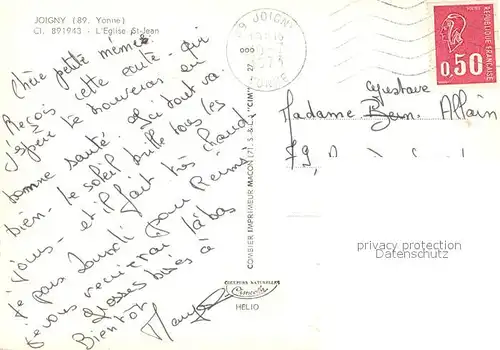 JOIGNY (89. Yonne)
Cl. 891943 - L'Eglise St-Jean
Chère petite mémée
Reçois cette carte qui
j'espère te trouvera en
bonne santé. Ici tout va
bien. Le soleil brille tous les
jours et il fait très chaud.
Je pars lundi pour Reims
je vous reverrai là bas
Grosses bises à
Bientôt
COMBIER IMPRIMEUR MACON (71. S.-&-L.) "CIM"
COULEURS NATURELLES
Cimcolor
HELIO
89 JOIGNY
YONNE
POSTES
REPUBLIQUE FRANÇAISE
0,50
Gustave
Madame Allain
79
privacy protection
Datenschutz